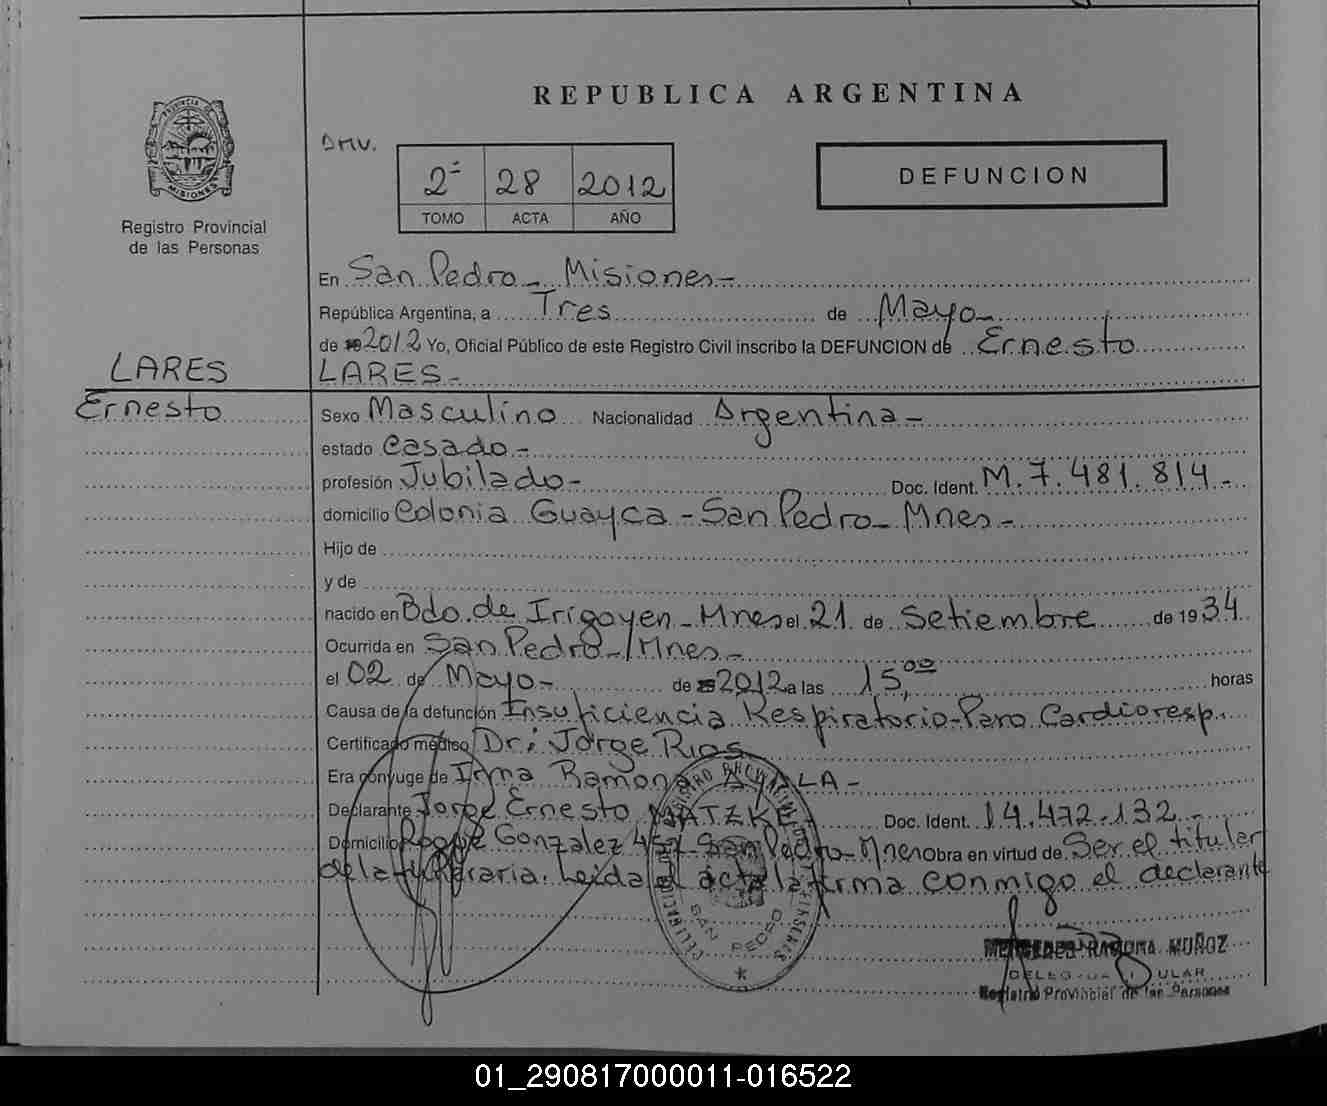 REPUBLICA ARGENTINA
PROVINCIA DE
MISIONES
Registro Provincial
de las Personas
DMV.
2ª 28 2012
TOMO ACTA AÑO
DEFUNCION
En San Pedro - Misiones -
República Argentina, a Tres de Mayo -
de 2012 Yo, Oficial Público de este Registro Civil inscribo la DEFUNCION de Ernesto
LARES LARES -
Ernesto Sexo Masculino Nacionalidad Argentina -
estado Casado -
profesión Jubilado - Doc. Ident. M. 7.481.814 -
domicilio Colonia Guayca - San Pedro - Mnes -
Hijo de
y de
nacido en Bdo. de Irigoyen - Mnes el 21 de Setiembre de 1934
Ocurrida en San Pedro - Mnes -
el 02 de Mayo - de 2012 a las 15,00 horas
Causa de la defunción Insuficiencia Respiratorio - Paro Cardioresp.
Certificado médico Dr: Jorge Rios
Era cónyuge de Irma Ramona -
Declarante Jorge Ernesto MATZKE Doc. Ident. 14.472.132 -
Domicilio Roque Gonzalez San Pedro - Mnes Obra en virtud de Ser el titular
de la Leida el acta la firma conmigo el declarante
SAN PEDRO
RAMONA MUÑOZ
Registro Provincial de las Personas
01_290817000011-016522